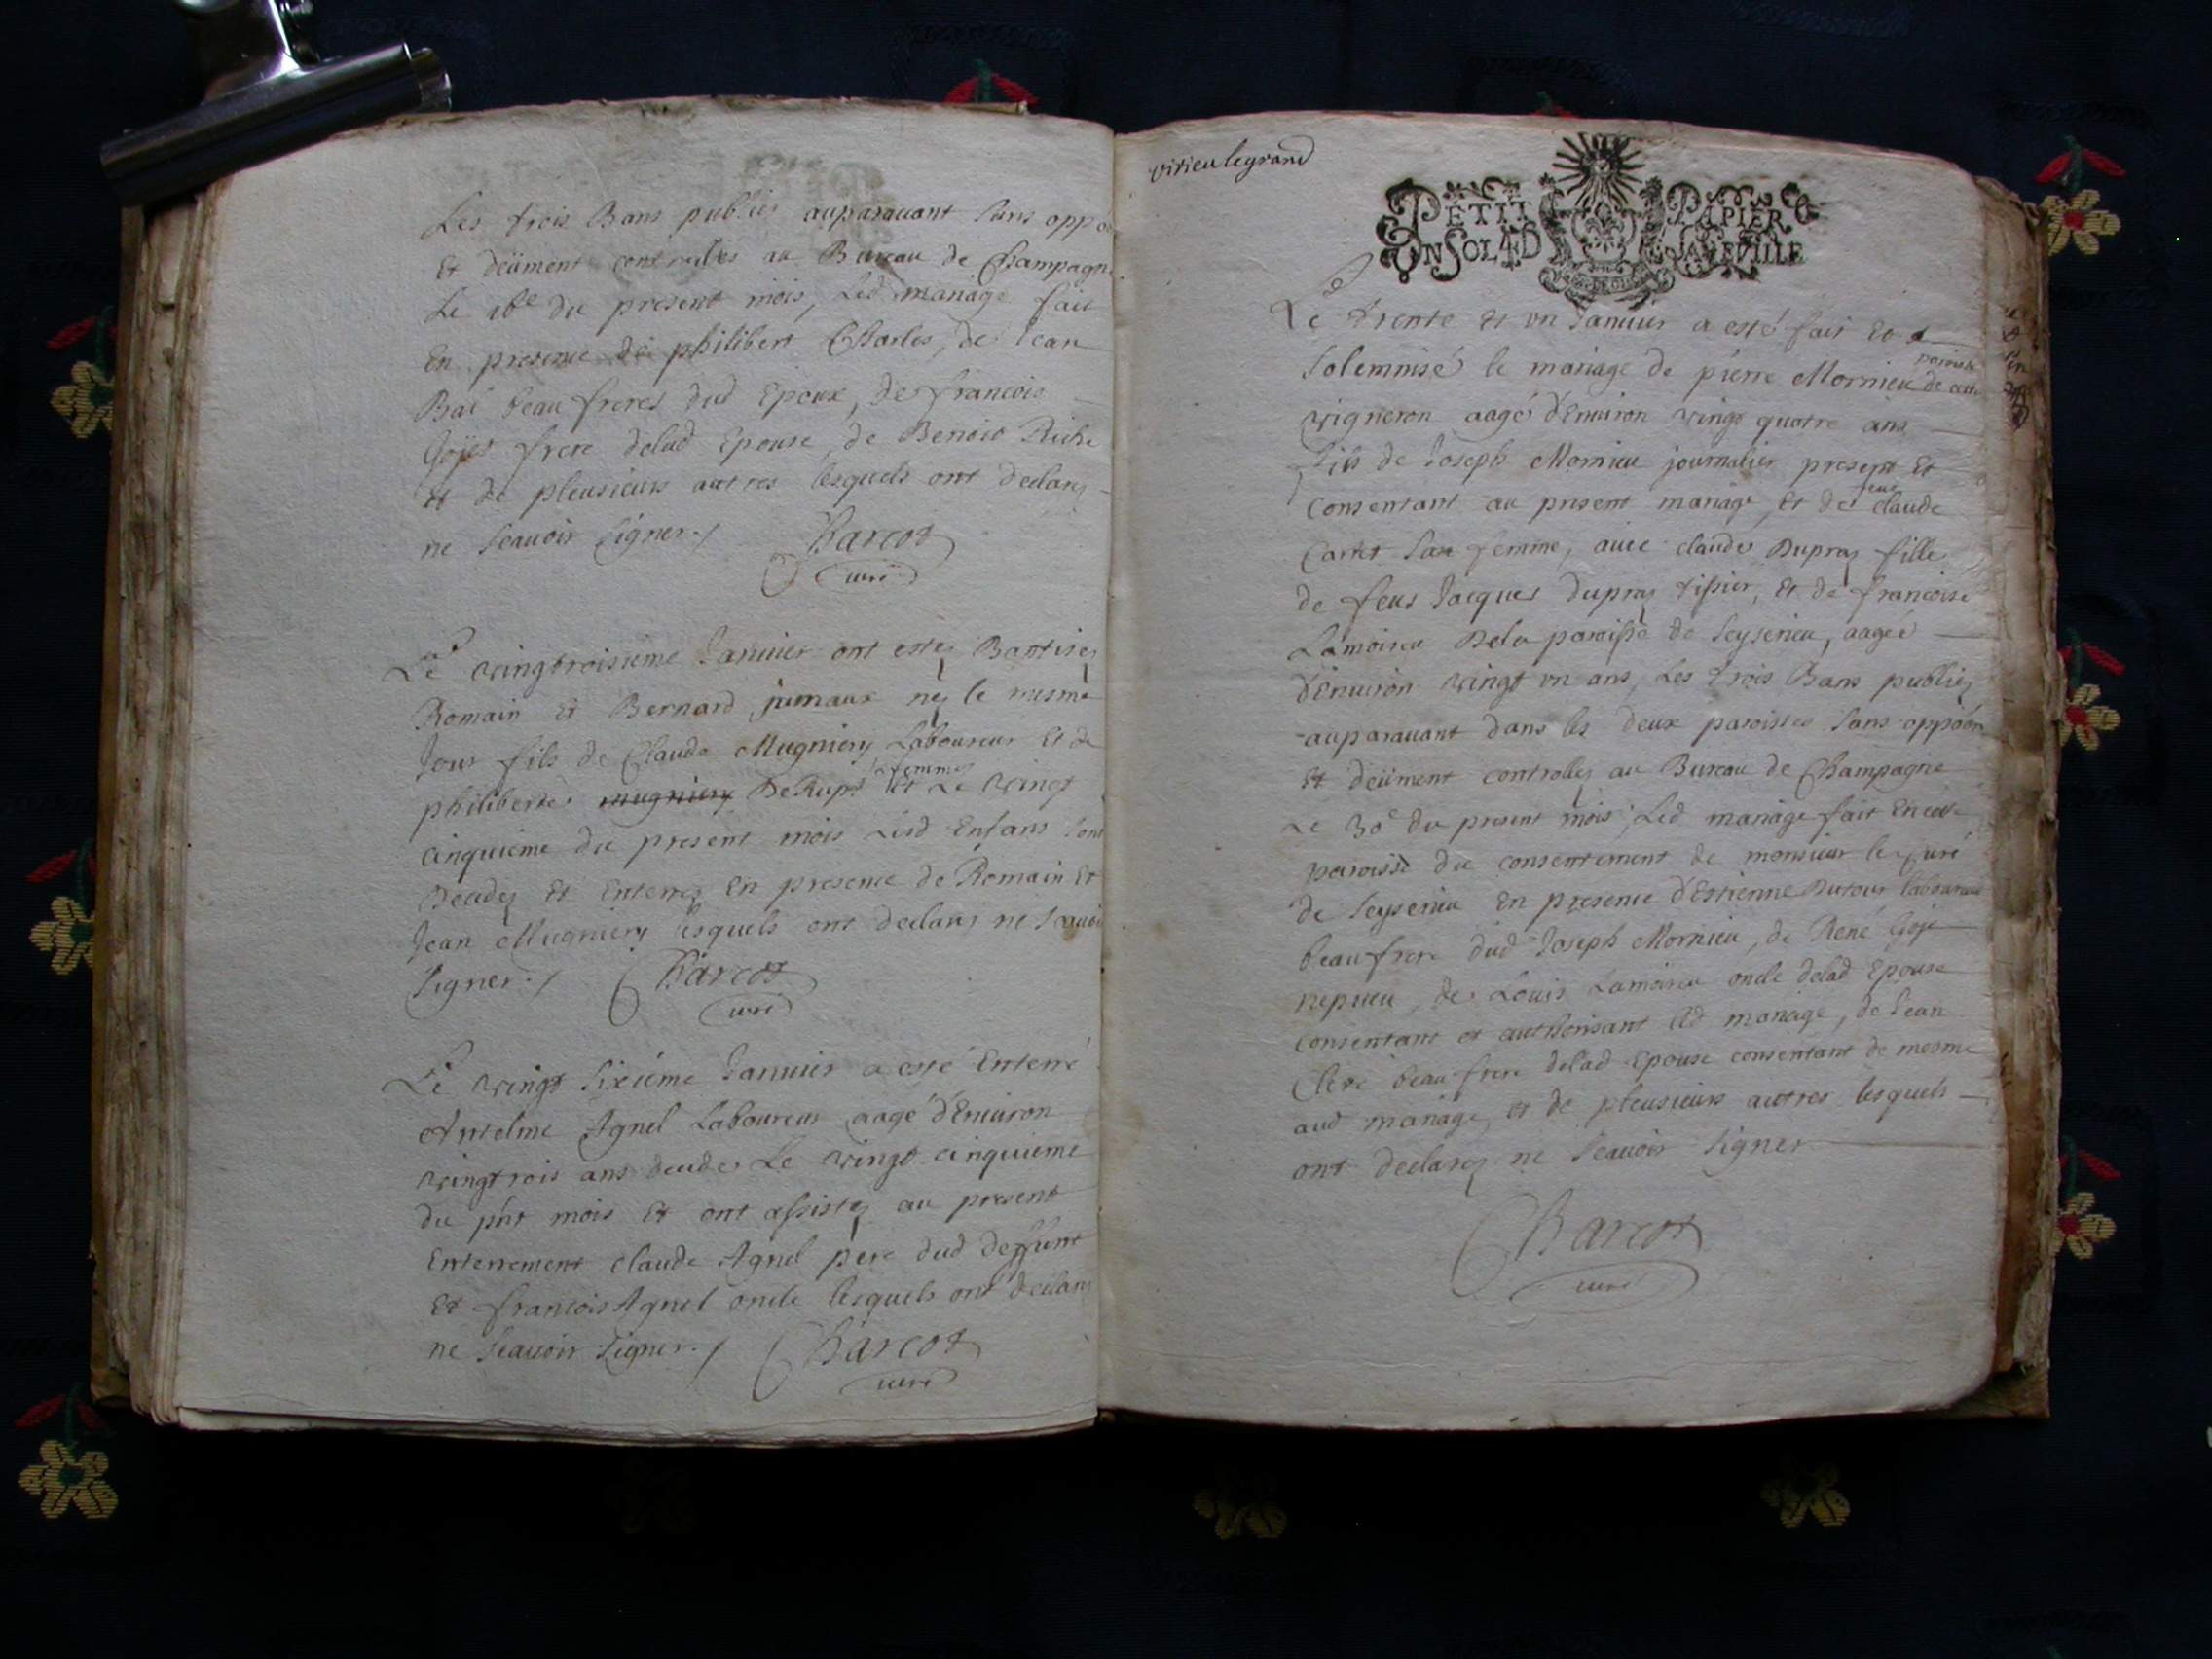 Les trois Bans publiez auparauant sans oppo
Et deüment controllés au Bureau de Champagne
Le 16e du present mois, Led mariage fait
En presence de philibert Charles, de Jean
Bai beaufreres dud Epoux, de francois
Gojet frere delad Epouse, de Benoit Riche
et de pleusieurs autres lesquels ont declarez
ne scauoir signer./ Charcot
curé
Le vingtroisieme Januier ont estez Baptisez
Romain Et Bernard jumaux nez le mesme
Jour fils de Claude Mugniery Laboureur Et de
philiberte mugniery DeRupt sa femme Et Le vingt
cinquieme du present mois Lesd Enfans sont
Decedez Et Enterrez En presence de Romain Et
Jean Mugniery lesquels ont declarez ne scauoir
signer./ Charcot
curé
Le vingt sixiéme Januier a esté Enterré
Antelme Agnel Laboureur aagé d'Enuiron
vingtrois ans decede Le vingt cinquieme
du pnt mois Et ont assistez au present
Enterrement claude Agnel pere dud deffunt
Et francois Agnel oncle lesquels ont declarez
ne scauoir signer./ Charcot
curé
virieu legrand
PETIT PAPIER
UN SOL 4 D LA FEVILLE
Le trente et vn Januier a esté fait Et
solemnisé le mariage de pierre Mornieu de cette paroisse
vigneron aagé d'Enuiron vingt quatre ans
fils de Joseph Mornieu journalier present Et
consentant au present mariage, Et de feue claude
Carret sa femme, auec claude Dupraz fille
de feus Jacques dupraz tissier, Et de francoise
Lamoireu Dela paroisse de seyserieu, aagée
d'Enuiron vingt vn ans, Les trois Bans publiez
auparauant dans les deux paroisses sans oppoon
Et deüment controllez au Bureau de Champagne
Le 30e du present mois, Led mariage fait En cette
paroisse du consentement de monsieur le curé
de seyserieu En presence d'Estienne Dutour laboureur
beaufrere dud Joseph Mornieu, de René Gojet
nepueu, de Louis Lamoireu oncle delad Epouse
consentant et authorisant led mariage, de Jean
Clerc beaufrere delad Epouse consentant de mesme
aud mariage, et de pleusieurs autres lesquels
ont declarez ne scauoir signer
Charcot
curé